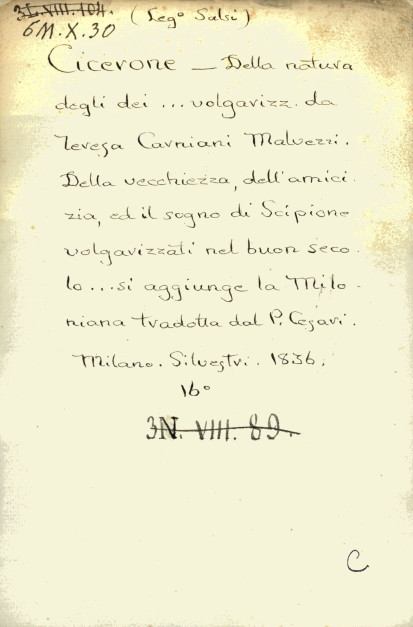 3L.VIII.104. (Leg° Salsi)
6M.X.30
Cicerone — Della natura
degli dei ... volgarizz. da
Teresa Carniani Malvezzi.
Della vecchiezza, dell'amici-
zia, ed il sogno di Scipione
volgarizzati nel buon seco-
lo ... si aggiunge la Milo-
niana tradotta dal P. Cesari.
Milano. Silvestri. 1836.
16°
3N. VIII. 89.
C